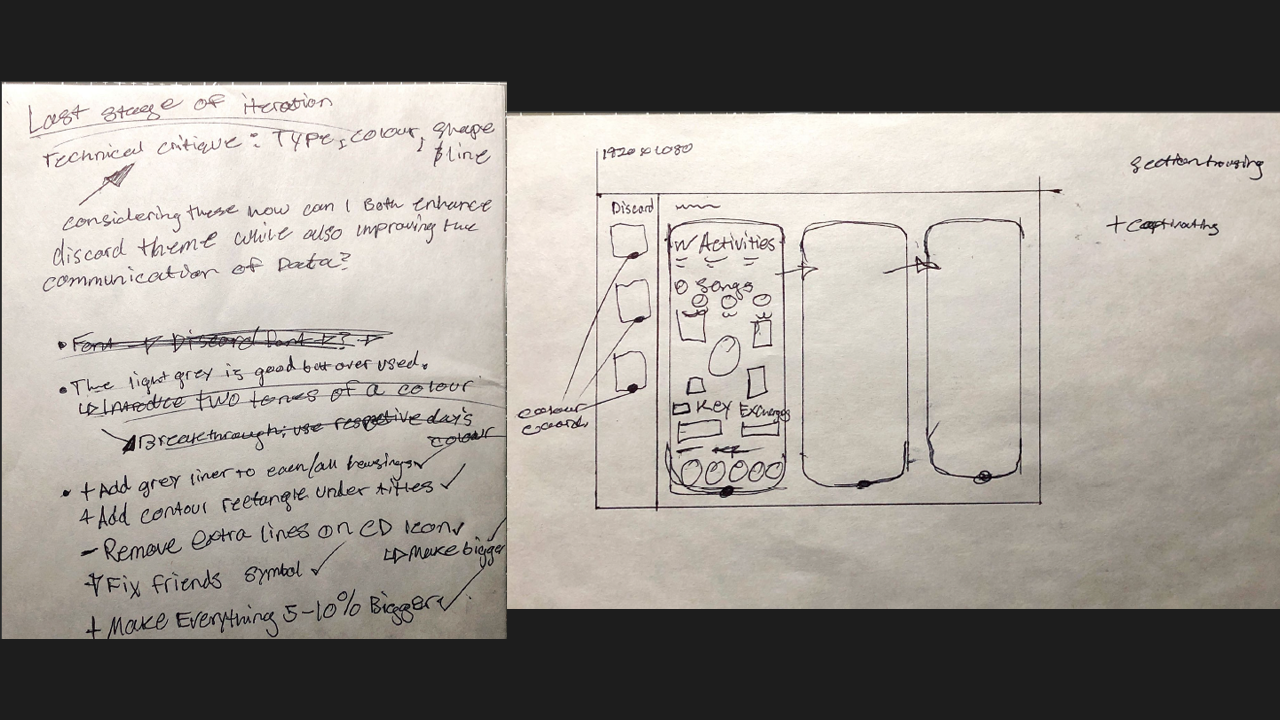 Last stage of iteration
Technical critique: Type, colour, shape
& line
considering these how can I Both enhance
discord theme while also improving the
communication of Data?
• Font → Discord Font
• The light grey is good but over used.
↳ Introduce two tones of a colour
Breakthrough; use respective day's
colour
• + Add grey liner to each/all housings ✓
+ Add contour rectangle under titles ✓
- Remove extra lines on CD icon ✓
↳ Make bigger
+ Fix friends symbol ✓
+ Make Everything 5-10% Bigger ✓
1920x1080
Discord
Activities
Songs
Key Exchanges
colour
section housing
+ captivating